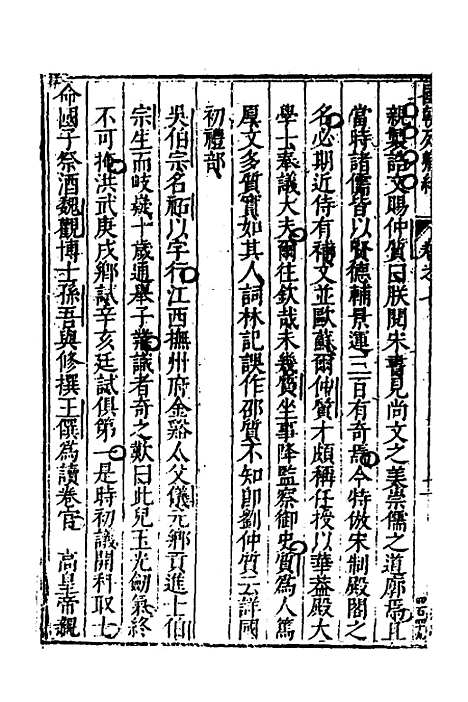 親製誥文賜仲質曰朕閱宋書見尚文之美崇儒之道廓焉且
當時諸儒皆以賢德輔景運三百有奇焉今特倣宋制殿閣之
名必期近侍有稱文並歐蘇爾仲質才頗稱任授以華葢殿大
學士奉議大夫爾往欽哉未幾質坐事降監察御史質爲人篤
厚文多質實如其人詞林記誤作邵質不知卽劉仲質云詳國
初禮部
吳伯宗名祏以字行江西撫州府金谿人父儀元鄉貢進士伯
宗生而岐嶷十歲通舉子業識者奇之歎曰此兒玉光劒氣終
不可掩洪武庚戌鄉試辛亥廷試俱第一是時初議開科取士
命國子祭酒魏觀博士孫吾與修撰王僎爲讀卷官 高皇帝親
卷之七